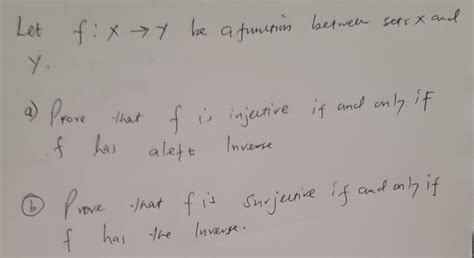 Let f : X → Y be a function between sets X and
Y.
a) Prove that f is injective if and only if
f has a left Inverse
b) Prove that f is surjective if and only if
f has the Inverse.